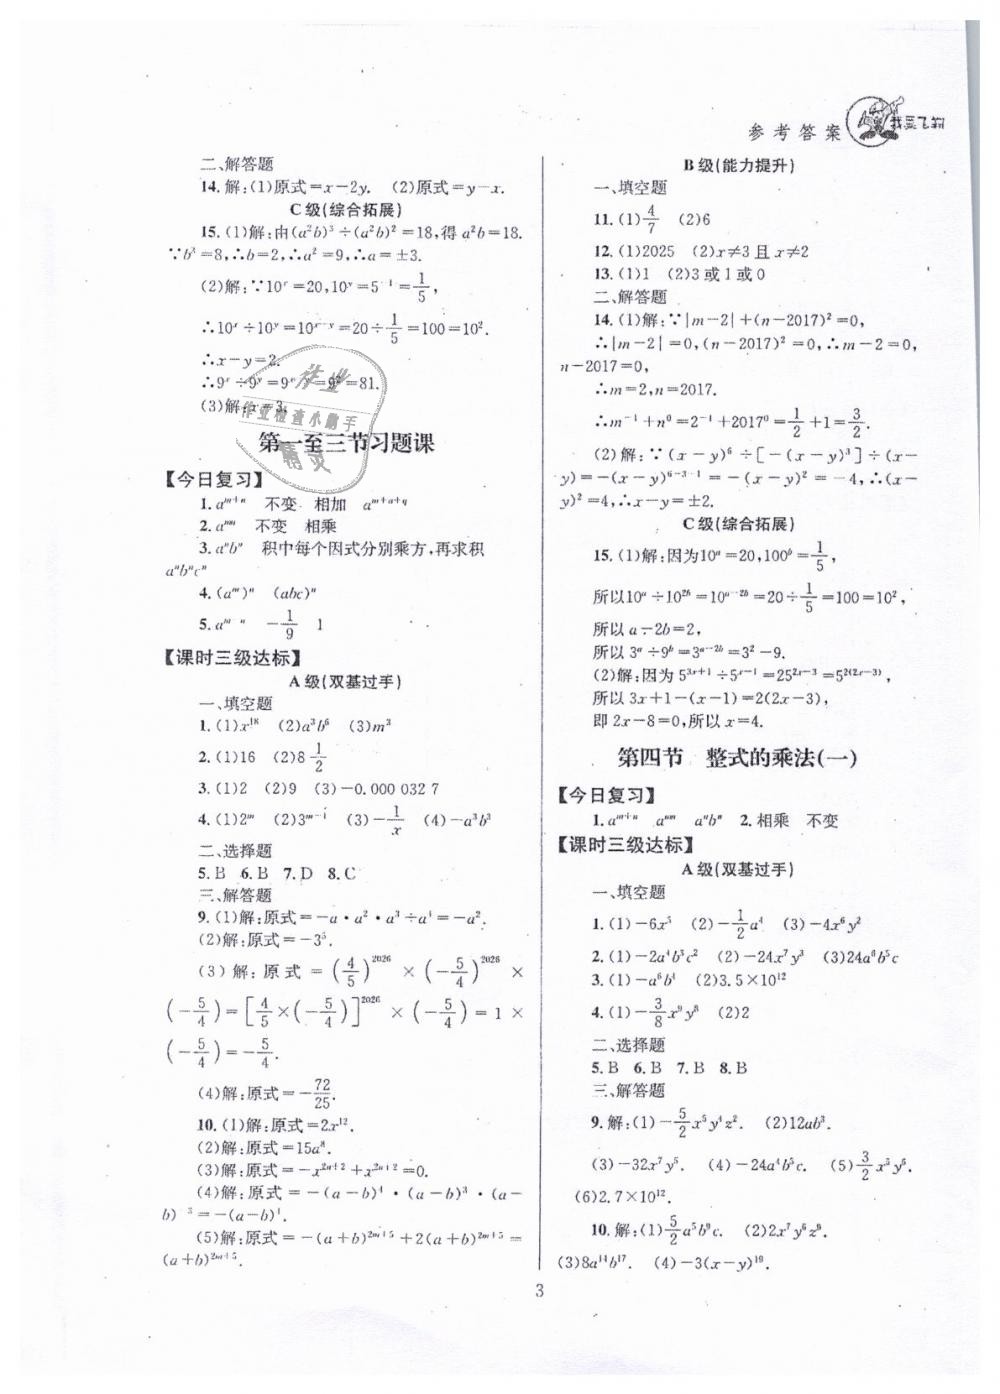 参考答案
我要飞翔
二、解答题
14. 解:(1)原式=x-2y. (2)原式=y-x.
C级(综合拓展)
15. (1)解:由(a²b)³÷(a²b)²=18,得a²b=18.
∵b³=8,∴b=2,∴a²=9,∴a=±3.
(2)解:∵10ˣ=20,10ʸ=5⁻¹=1/5,
∴10ˣ÷10ʸ=10ˣ⁻ʸ=20÷1/5=100=10².
∴x-y=2.
∴9ˣ÷9ʸ=9ˣ⁻ʸ=9²=81.
(3)解:x=3.
作业
作业检查小助手
精灵
第一至三节习题课
【今日复习】
1. a^{m+n} 不变 相加 a^{m+n+q}
2. a^{mn} 不变 相乘
3. aⁿbⁿ 积中每个因式分别乘方,再求积
aⁿbⁿcⁿ
4. (a^m)ⁿ (abc)ⁿ
5. a^{m-n} -1/9 1
【课时三级达标】
A级(双基过手)
一、填空题
1. (1)x¹⁸ (2)a³b⁶ (3)m³
2. (1)16 (2)8 1/2
3. (1)2 (2)9 (3)-0.000 032 7
4. (1)2^m (2)3^{m-1} (3)-1/x (4)-a³b³
二、选择题
5. B 6. B 7. D 8. C
三、解答题
9. (1)解:原式=-a·a²·a³÷a⁴=-a².
(2)解:原式=-3⁵.
(3)解:原式=(4/5)^{2026}×(-5/4)^{2026}×
(-5/4)=[4/5×(-5/4)]^{2026}×(-5/4)=1×
(-5/4)=-5/4.
(4)解:原式=-72/25.
10. (1)解:原式=2x¹².
(2)解:原式=15a⁸.
(3)解:原式=-x^{2n+2}+x^{2n+2}=0.
(4)解:原式=-(a-b)⁴·(a-b)³·(a-
b)⁻³=-(a-b)⁴.
(5)解:原式=-(a+b)^{2m+5}+2(a+b)^{2m+5}=
(a+b)^{2m+5}.
B级(能力提升)
一、填空题
11. (1)4/7 (2)6
12. (1)2025 (2)x≠3且x≠2
13. (1)1 (2)3或1或0
二、解答题
14. (1)解:∵|m-2|+(n-2017)²=0,
∴|m-2|=0,(n-2017)²=0,∴m-2=0,
n-2017=0,
∴m=2,n=2017.
∴m⁻¹+n⁰=2⁻¹+2017⁰=1/2+1=3/2.
(2)解:∵(x-y)⁶÷[-(x-y)³]÷(x-
y)=-(x-y)⁶⁻³⁻¹=-(x-y)²=-4,∴(x-
y)²=4,∴x-y=±2.
C级(综合拓展)
15. (1)解:因为10ᵃ=20,100ᵇ=1/5,
所以10ᵃ÷10²ᵇ=10ᵃ⁻²ᵇ=20÷1/5=100=10²,
所以a-2b=2,
所以3ᵃ÷9ᵇ=3ᵃ⁻²ᵇ=3²=9.
(2)解:因为5^{3x+1}÷5^{x-1}=25^{2x-3}=5^{2(2x-3)},
所以3x+1-(x-1)=2(2x-3),
即2x-8=0,所以x=4.
第四节 整式的乘法(一)
【今日复习】
1. a^{m+n} a^{mn} aⁿbⁿ 2. 相乘 不变
【课时三级达标】
A级(双基过手)
一、填空题
1. (1)-6x⁵ (2)-1/2a⁴ (3)-4x⁶y²
2. (1)-2a⁴b⁵c² (2)-24x⁷y³ (3)24a⁶b⁵c
3. (1)-a⁶b⁴ (2)3.5×10¹²
4. (1)-3/8x⁹y⁸ (2)2
二、选择题
5. B 6. B 7. B 8. B
三、解答题
9. 解:(1)-5/2x⁵y⁴z². (2)12ab³.
(3)-32x⁷y⁵. (4)-24a⁴b⁵c. (5)3/2x⁵y⁶.
(6)2.7×10¹².
10. 解:(1)5/2a⁵b⁹c. (2)2x⁷y⁶z⁹.
(3)8a¹⁴b¹⁷. (4)-3(x-y)¹⁹.
3